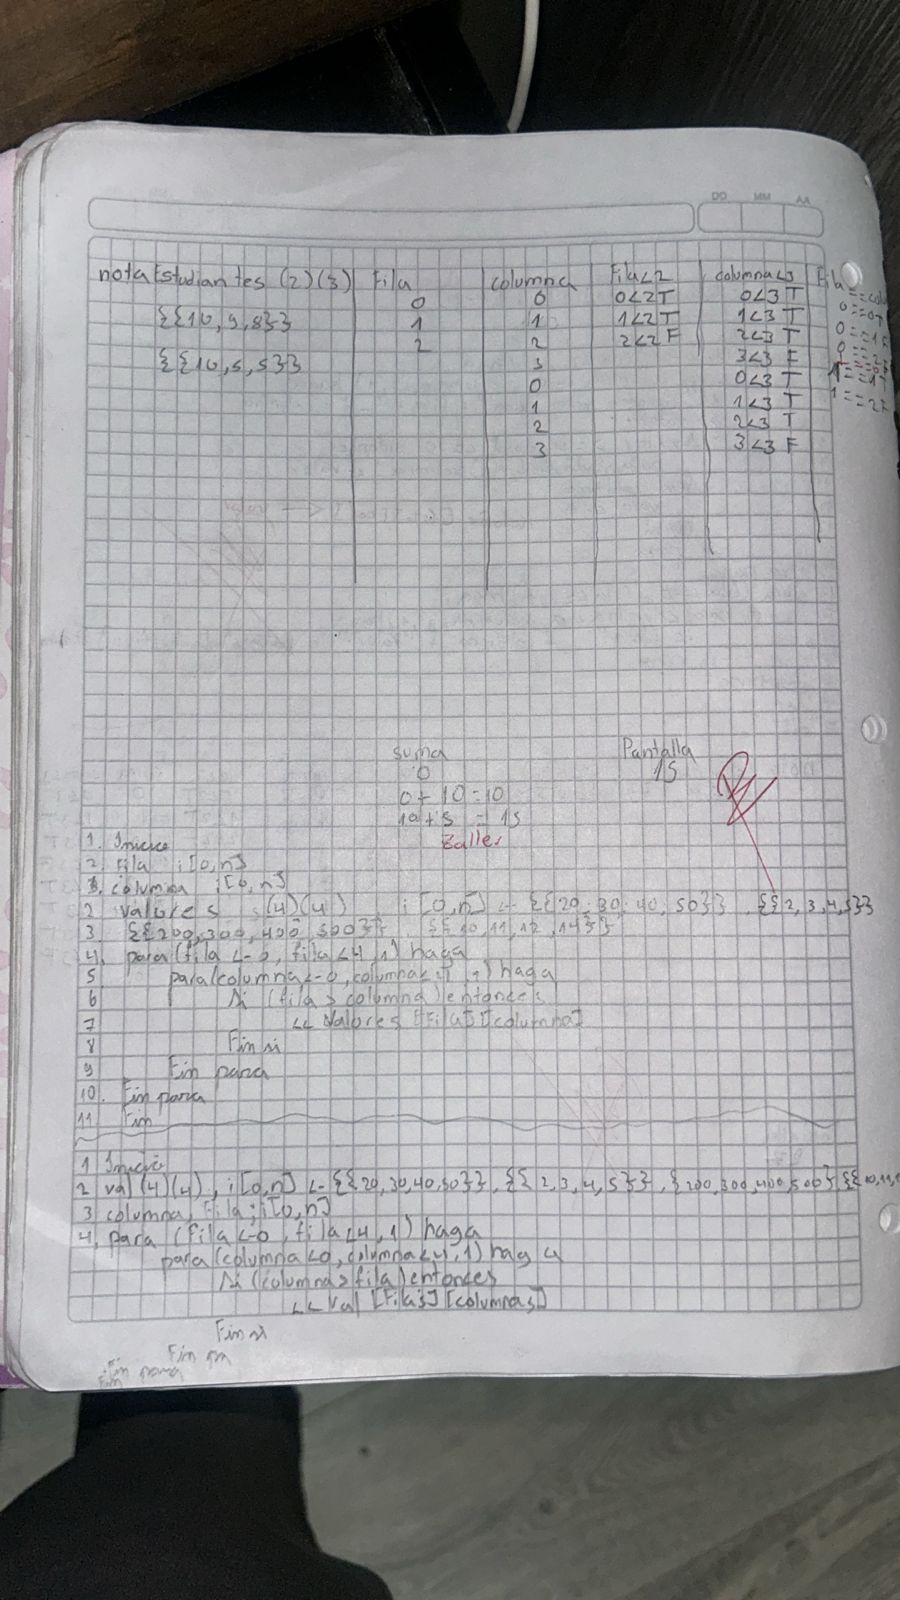 DD MM AA
notaEstudiantes (2)(3) Fila columna Fila<2 columna<3
0 0 0<2 T 0<3 T 0==0T
{{10,9,8}} 1 1 1<2 T 1<3 T
2 2 2<2 F 2<3 T
{{10,5,5}} 3 3<3 F
0 0<3 T 1==1T
1 1<3 T 1==2F
2 2<3 T
3 3<3 F
suma Pantalla
0 15
0+10=10
10+5 = 15
1. Inicio
2. Fila i[0,n]
3. columna i[0,n]
2 valores (4)(4) i[0,n] <- {{20,30,40,50}}, {{2,3,4,5}}
3. {{200,300,400,500}}, {{10,11,12,14}}
4. para (fila <-0, fila <4, 1) haga
5 para(columna <-0, columna<4, 1) haga
6 si (fila > columna) entonces
7 << Valores [Fila] [columna]
8 Fin si
9 Fin para
10. Fin para
11 Fin
1 Inicio
2 val (4)(4), i[0,n] <- {{20,30,40,50}}, {{2,3,4,5}}, {200,300,400,500} {{10,11,
3 columna, Fila; i[0,n]
4. para (fila <-0, fila <4, 1) haga
para(columna <0, columna <4, 1) haga
si (columna > fila) entonces
<< Val [Filas] [columnas]
Fin si
Fin pa
Fin para
Fin